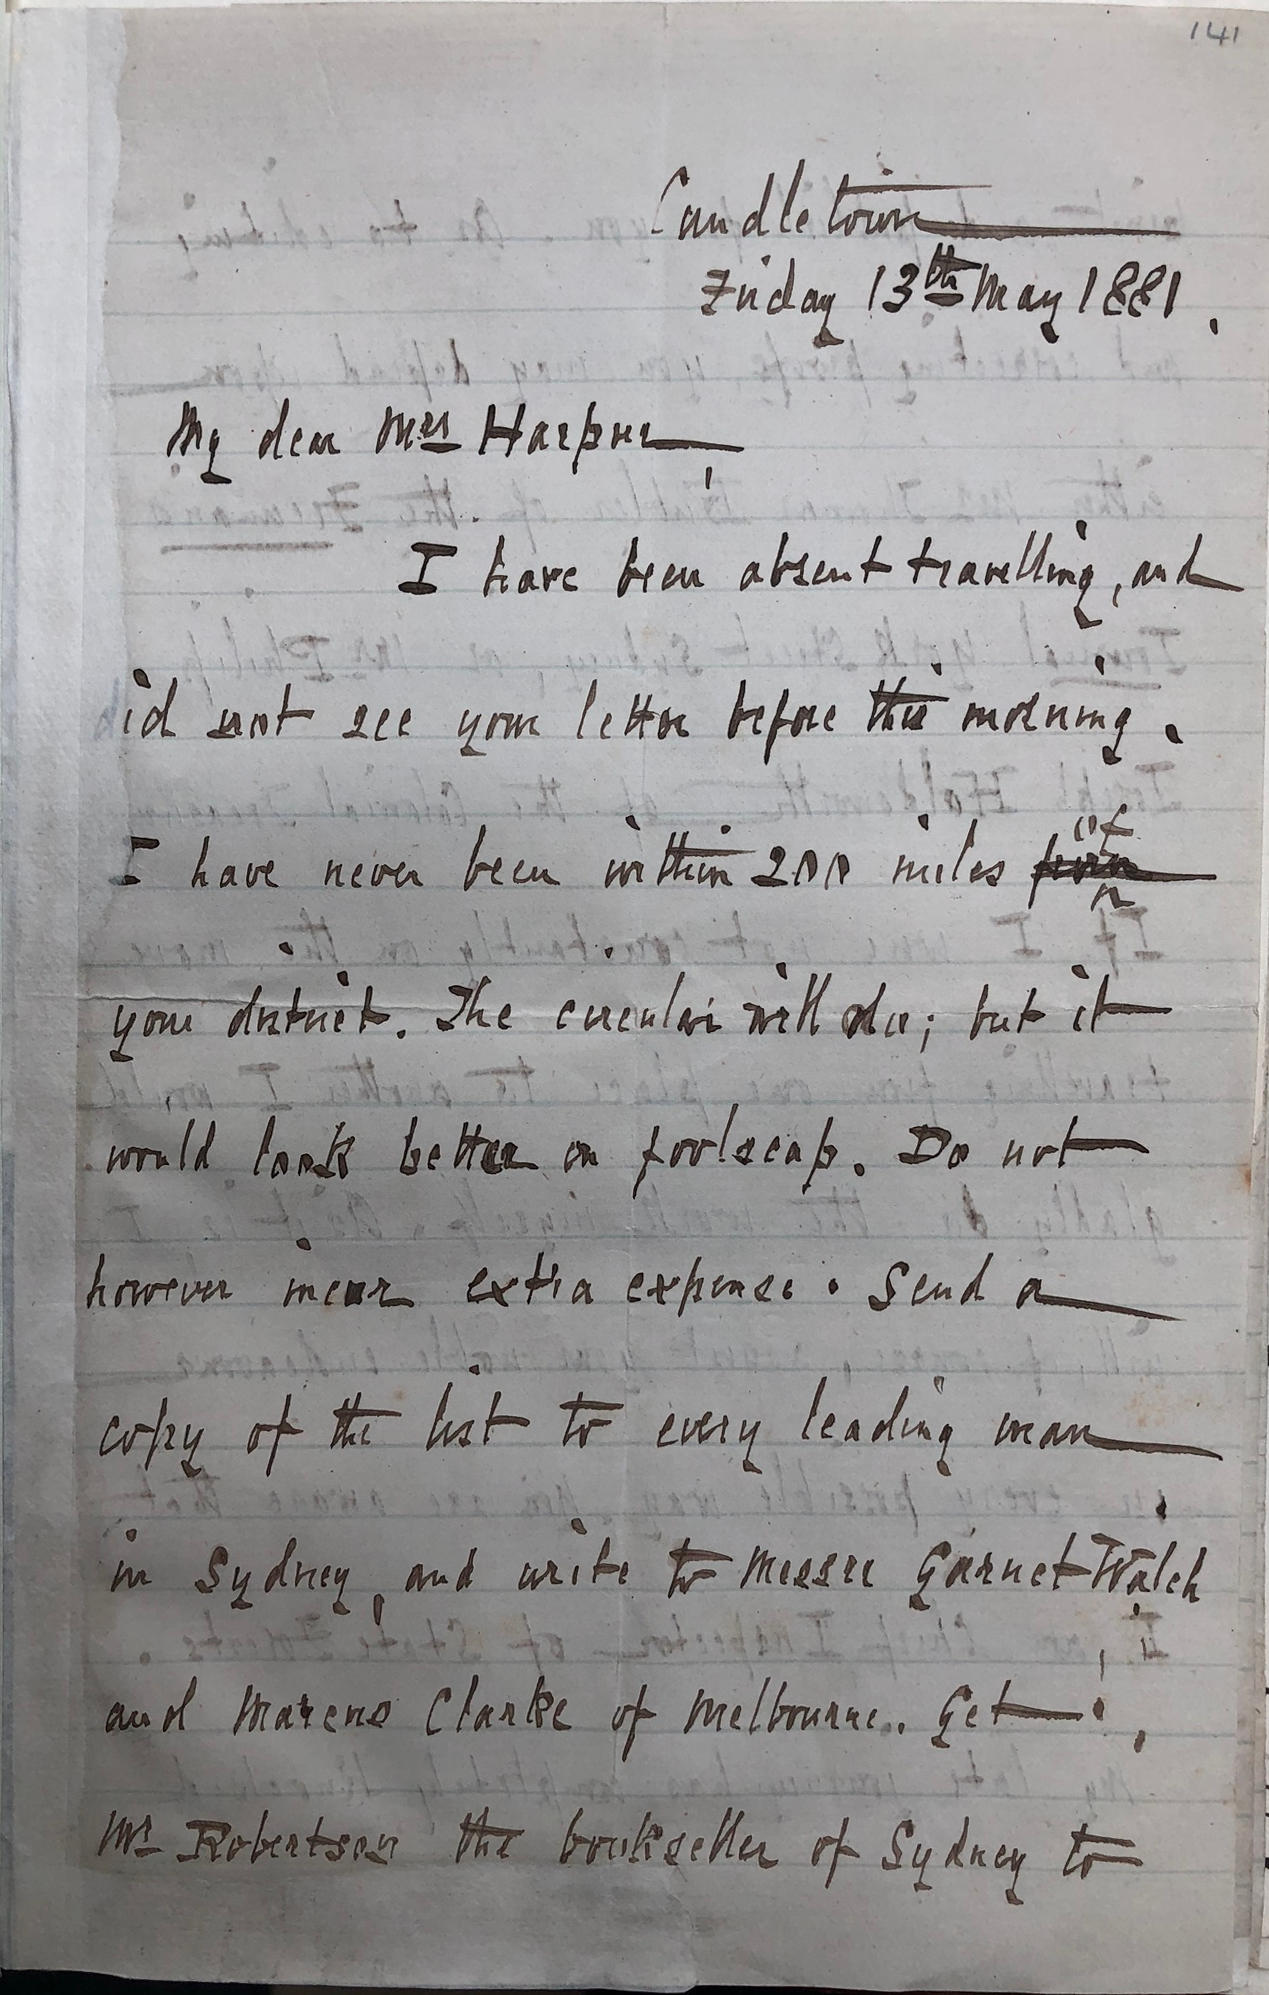 141
Candletown
Friday 13th May 1881.
My dear Mrs Harpur,
I have been absent travelling, and
did not see your letter before this morning.
I have never been within 200 miles from of
your district. The circular will do; but it
would look better on foolscap. Do not
however incur extra expense. Send a
copy of the list to every leading man
in Sydney, and write to Messrs Garnet Walch
and Marcus Clarke of Melbourne. Get
Mr Robertson the bookseller of Sydney to